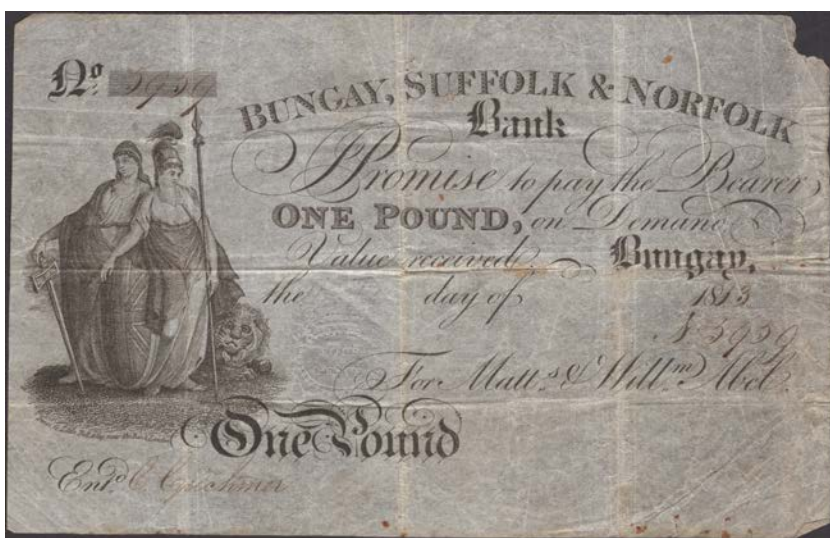 No. 5939
BUNGAY, SUFFOLK & NORFOLK
Bank
I Promise to pay the Bearer,
ONE POUND, on Demand
Value received Bungay,
the day of 1813
N 5939
For Matt.s & Will.m Abel.
One Pound
Ent.d C.